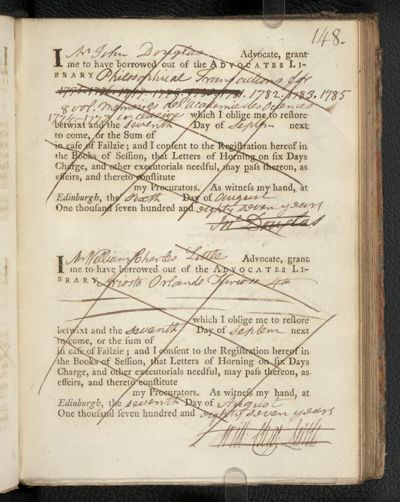 148.
I Mr John Douglas Advocate, grant
me to have borrowed out of the ADVOCATES LI-
BRARY Philosophical Transactions for
1782. 1783. 1785
& vol. Memoires de l'academie des Sciences
1774-1777 inclusive which I oblige me to reſtore
betwixt and the seventh Day of Septem next
to come, or the Sum of
in caſe of Failzie; and I conſent to the Regiſtration hereof in
the Books of Seſſion, that Letters of Horning on ſix Days
Charge, and other executorials needful, may paſs thereon, as
effeirs, and thereto conſtitute
my Procurators. As witneſs my hand, at
Edinburgh, the sixth Day of august
One thouſand ſeven hundred and eighty seven years
Jno. Douglas
I Mr William Charles Little Advocate, grant
me to have borrowed out of the ADVOCATES LI-
BRARY Ariosto Orlando Furioso 4to
which I oblige me to reſtore
betwixt and the seventh Day of Septem next
to come, or the ſum of
in caſe of Failzie; and I conſent to the Regiſtration hereof in
the Books of Seſſion, that Letters of Horning on ſix Days
Charge, and other executorials needful, may paſs thereon, as
effeirs, and thereto conſtitute
my Procurators. As witneſs my hand, at
Edinburgh, the seventh Day of August
One thouſand ſeven hundred and eighty seven years
Will Chas. Little